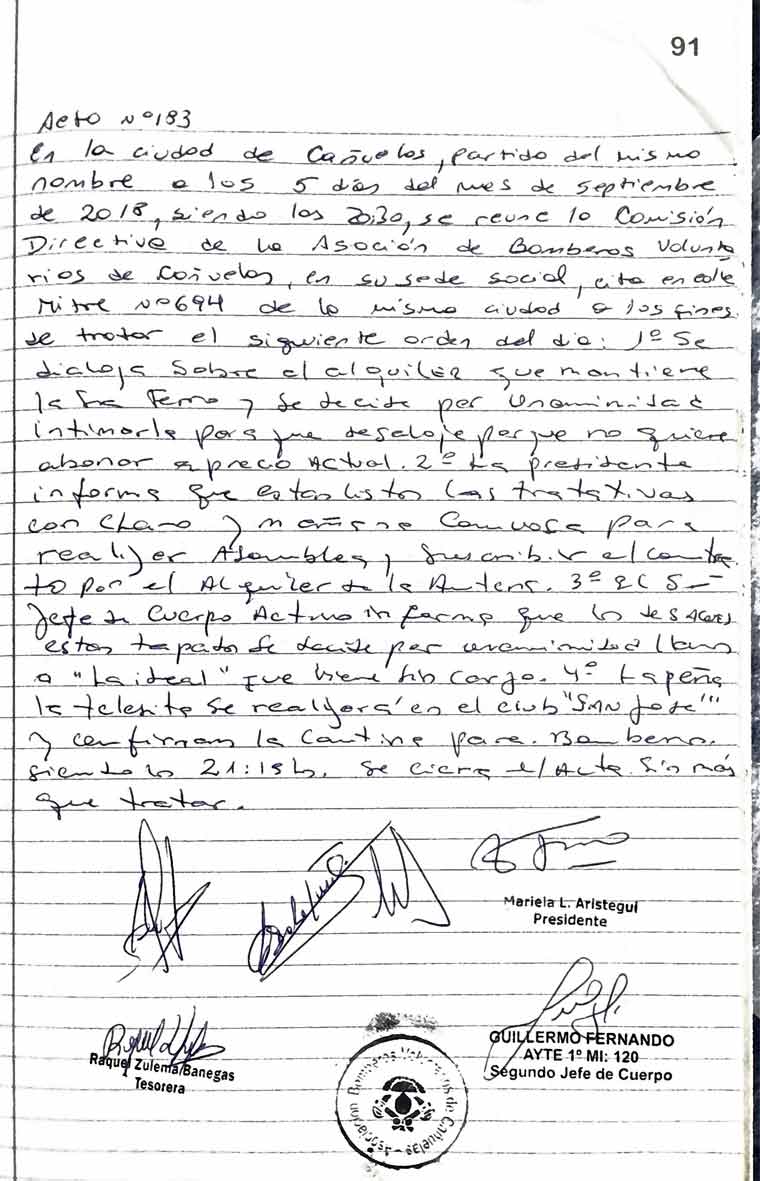 91
Acta Nº183
En la ciudad de Cañuelas, partido del mismo
nombre a los 5 días del mes de septiembre
de 2018, siendo las 20:30, se reune la Comisión
Directiva de la Asoción de Bomberos Volunta
rios de Cañuelas, en su sede social, cita en calle
Mitre Nº694 de la misma ciudad a los fines
de tratar el siguiente orden del día: 1º Se
dialoga sobre el alquiler que mantiene
la Sra Ferro y se decide por unanimidad
intimarla para que desaloje porque no quiere
abonar a precio Actual. 2º La presidenta
informa que estan listos las tratativas
con Claro y mañana Convoca para
realizar Asamblea y suscribir el contra
to por el Alquiler de la Antena. 3º El S
Jefe de Cuerpo Activo informa que los desagues
estan tapado se decide por unanimidad llamar
a "La ideal" que viene sin cargo. 4º La peña
la telesita se realizara en el club "SAN Jose"
y confirman la Cantina para Bomberos.
siendo las 21:15hs. Se cierra el Acta. Sin más
que tratar.
Mariela L. Aristegui
Presidente
GUILLERMO FERNANDO
AYTE 1º MI: 120
Segundo Jefe de Cuerpo
Raquel Zulema Banegas
Tesorera
Asociación Bomberos Voluntarios de Cañuelas